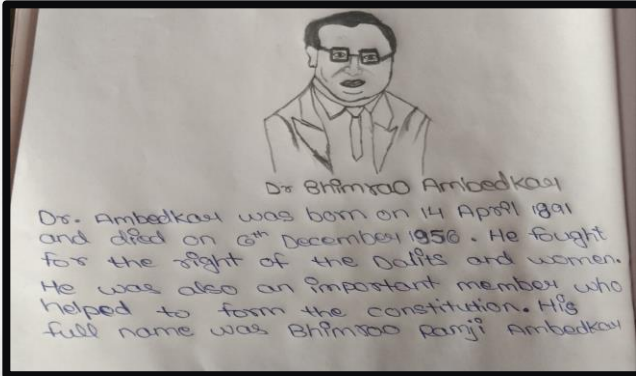 Dr Bhimrao Ambedkar
Dr. Ambedkar was born on 14 April 1891
and died on 6th December 1956. He fought
for the right of the Dalits and women.
He was also an important member who
helped to form the constitution. His
full name was Bhimrao Ramji Ambedkar